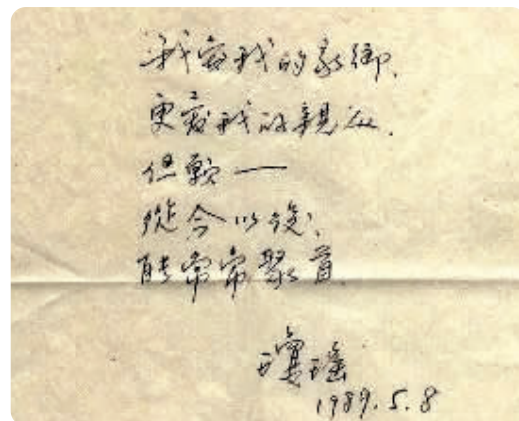 我愛我的家鄉、
更愛我的親人.
但願——
從今以後、
能常常聚首.
瓊瑤
1989.5.8